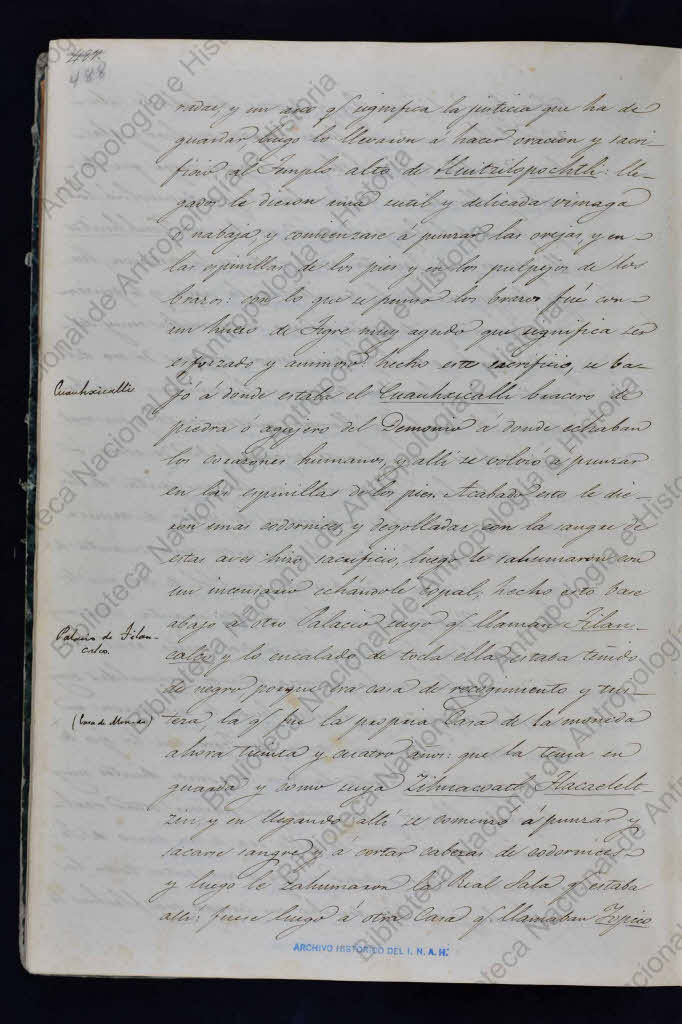 488
radas, y un arco q.^e significa la justicia que ha de
guardar, luego lo llevaron a hacer oracion y sacri-
ficio al Templo alto de Huitzilopochtli: lle-
gados le dieron una sutil y delicada vimaga
ó nabaja, y comienzase á punzar las orejas, y en
las espinillas de los pies y en los pulpejos de los
brazos: con lo que se punzó los brazos fué con
un hueso de Tigre muy agudo que significa ser
esforzado y animoso hecho este sacrificio, se ba-
jó á donde estaba el Cuauhxicalli bracero de
piedra ó agujero del Demonio á donde echaban
los corazones humanos, y allí se volvió á punzar
en las espinillas de los pies. Acabado esto le die-
ron unas codornices, y degolladas con la sangre de
estas aves hizo sacrificio, luego le sahumaron con
un incensario echandole copal; hecho esto vase
abajo á otro Palacio suyo q.^e llaman Tilan-
calco, y lo encalado de toda ella estaba teñido
de negro porque era casa de recogimiento y tris-
teza la q.^e fué la propria Casa de la moneda
ahora treinta y cuatro años: que la tenia en
guarda y como suya Zihuacoatl Tlacaelelt-
zin, y en llegando allí se comenzó á punzar y
sacarse sangre y á cortar cabezas de codornices
y luego le zahumaron la Real Sala q.^e estaba
allí: fuese luego á otra Casa q.^e llamaban Yopico
Cuauhxicalli
Palacio de Tilan-
calco.
(Casa de Moneda)
ARCHIVO HISTORICO DEL I. N. A. H.
Biblioteca Nacional de Antropología e Historia